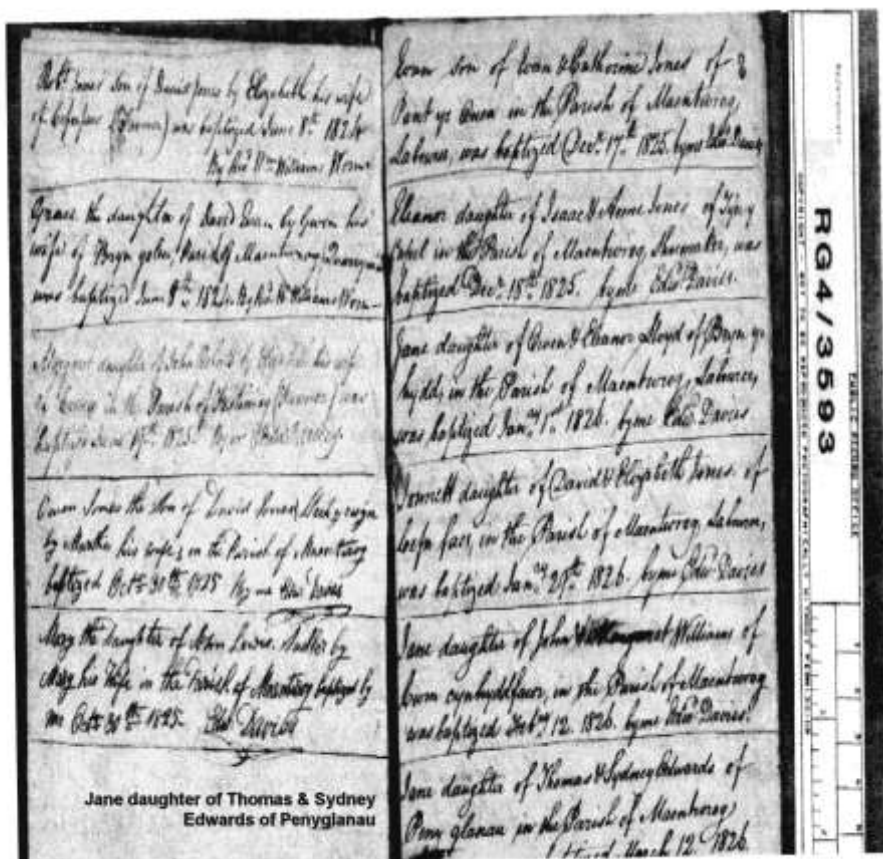 Robt. Jones son of David Jones by Elizabeth his wife
of (Farmer) was baptized June 8th 1824
By Revd. Wm. Williams
Grace the daughter of David Evan by Gwen his
wife of Bryn Parish of Maentwrog
was baptized June 8th 1824 By Revd. W. Williams
Margaret daughter of John by his wife
of in the Parish of Festiniog (Farmer) was
baptized June 19th 1825 By
Owen Jones the son of David Jones
by Martha his wife, in the Parish of Maentwrog
baptized Octr. 30th 1825 By me Edwd. Davies
Mary the daughter of John Lewis, by
Mary his Wife in the Parish of Maentwrog baptized by
me Octr. 30th 1825. Edwd. Davies
Jane daughter of Thomas & Sydney
Edwards of Penyglanau
Evan son of Evan & Catherine Jones of
Pant yr Onen in the Parish of Maentwrog,
Labourer, was baptized Decr. 17th 1825. by me Edw. Davies
Eleanor daughter of Isaac & Anne Jones of Ty'n y
in the Parish of Maentwrog, Shoemaker, was
baptized Decr. 18th 1825. by me Edw. Davies.
Jane daughter of Owen & Eleanor Lloyd of Bryn yr
hydd, in the Parish of Maentwrog, Labourer,
was baptized Jany. 1st 1826. by me Edw. Davies
Jennett daughter of David & Elizabeth Jones of
Cefn faes, in the Parish of Maentwrog, Labourer,
was baptized Jany. 29th 1826. by me Edw. Davies
Jane daughter of John & Margaret Williams of
Cwm in the Parish of Maentwrog
was baptized Feby. 12. 1826. by me Edw. Davies.
Jane daughter of Thomas & Sydney Edwards of
Peny glanau in the Parish of Maentwrog
baptized March 12. 1826.
RG4/3593
PUBLIC RECORD OFFICE
COPYRIGHT - NOT TO BE REPRODUCED PHOTOGRAPHICALLY WITHOUT PERMISSION